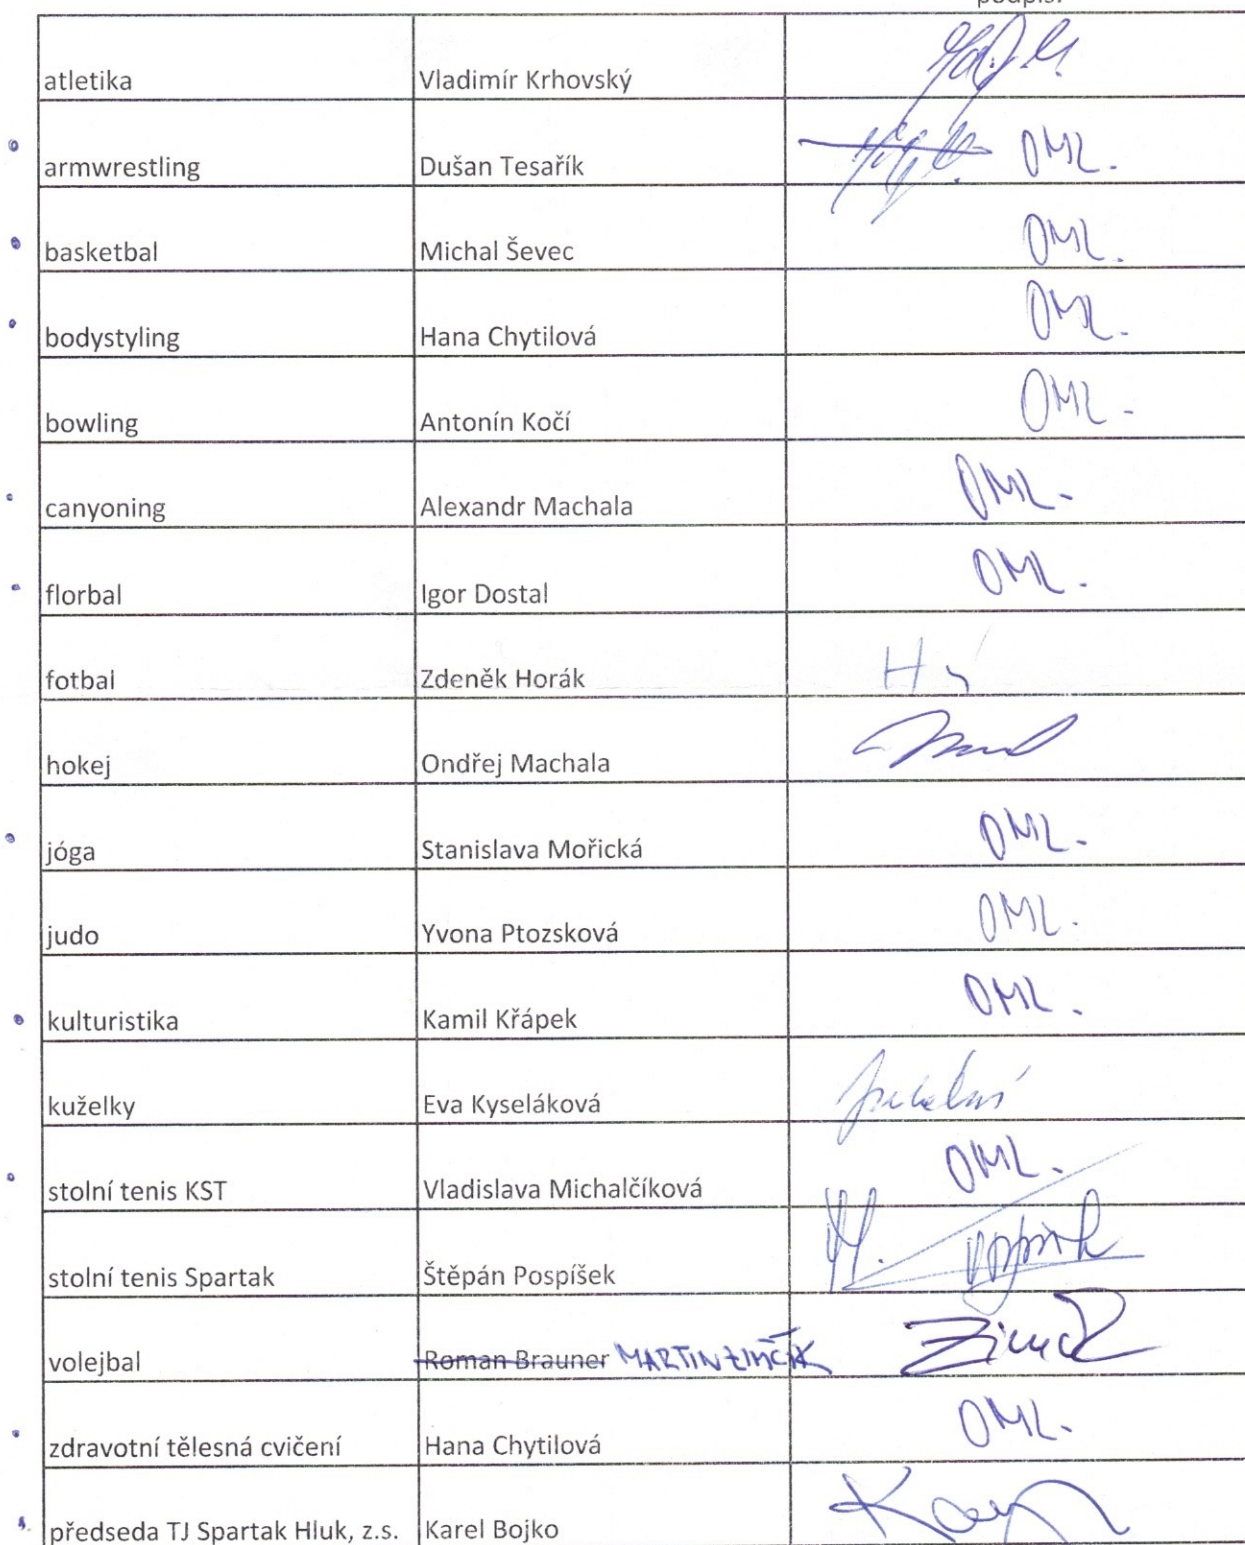 podpis:
atletika Vladimír Krhovský
armwrestling Dušan Tesařík OML.
basketbal Michal Ševec OML.
bodystyling Hana Chytilová OML.
bowling Antonín Kočí OML.
canyoning Alexandr Machala OML.
florbal Igor Dostal OML.
fotbal Zdeněk Horák
hokej Ondřej Machala
jóga Stanislava Mořická OML.
judo Yvona Ptozsková OML.
kulturistika Kamil Křápek OML.
kuželky Eva Kyseláková
stolní tenis KST Vladislava Michalčíková OML.
stolní tenis Spartak Štěpán Pospíšek
volejbal Roman Brauner MARTIN
zdravotní tělesná cvičení Hana Chytilová OML.
předseda TJ Spartak Hluk, z.s. Karel Bojko